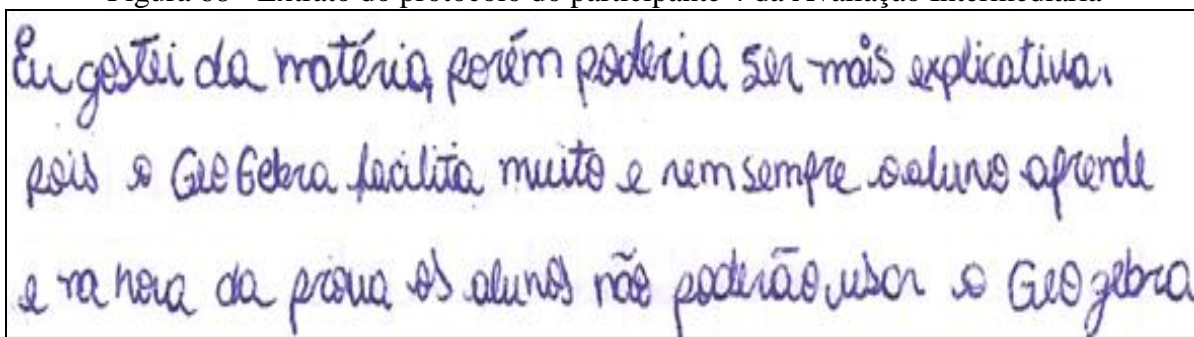 Eu gostei da matéria, porém poderia ser mais explicativa.
pois o GeoGebra facilita muito e nem sempre o aluno aprende
e na hora da prova os alunos não poderão usar o Geogebra